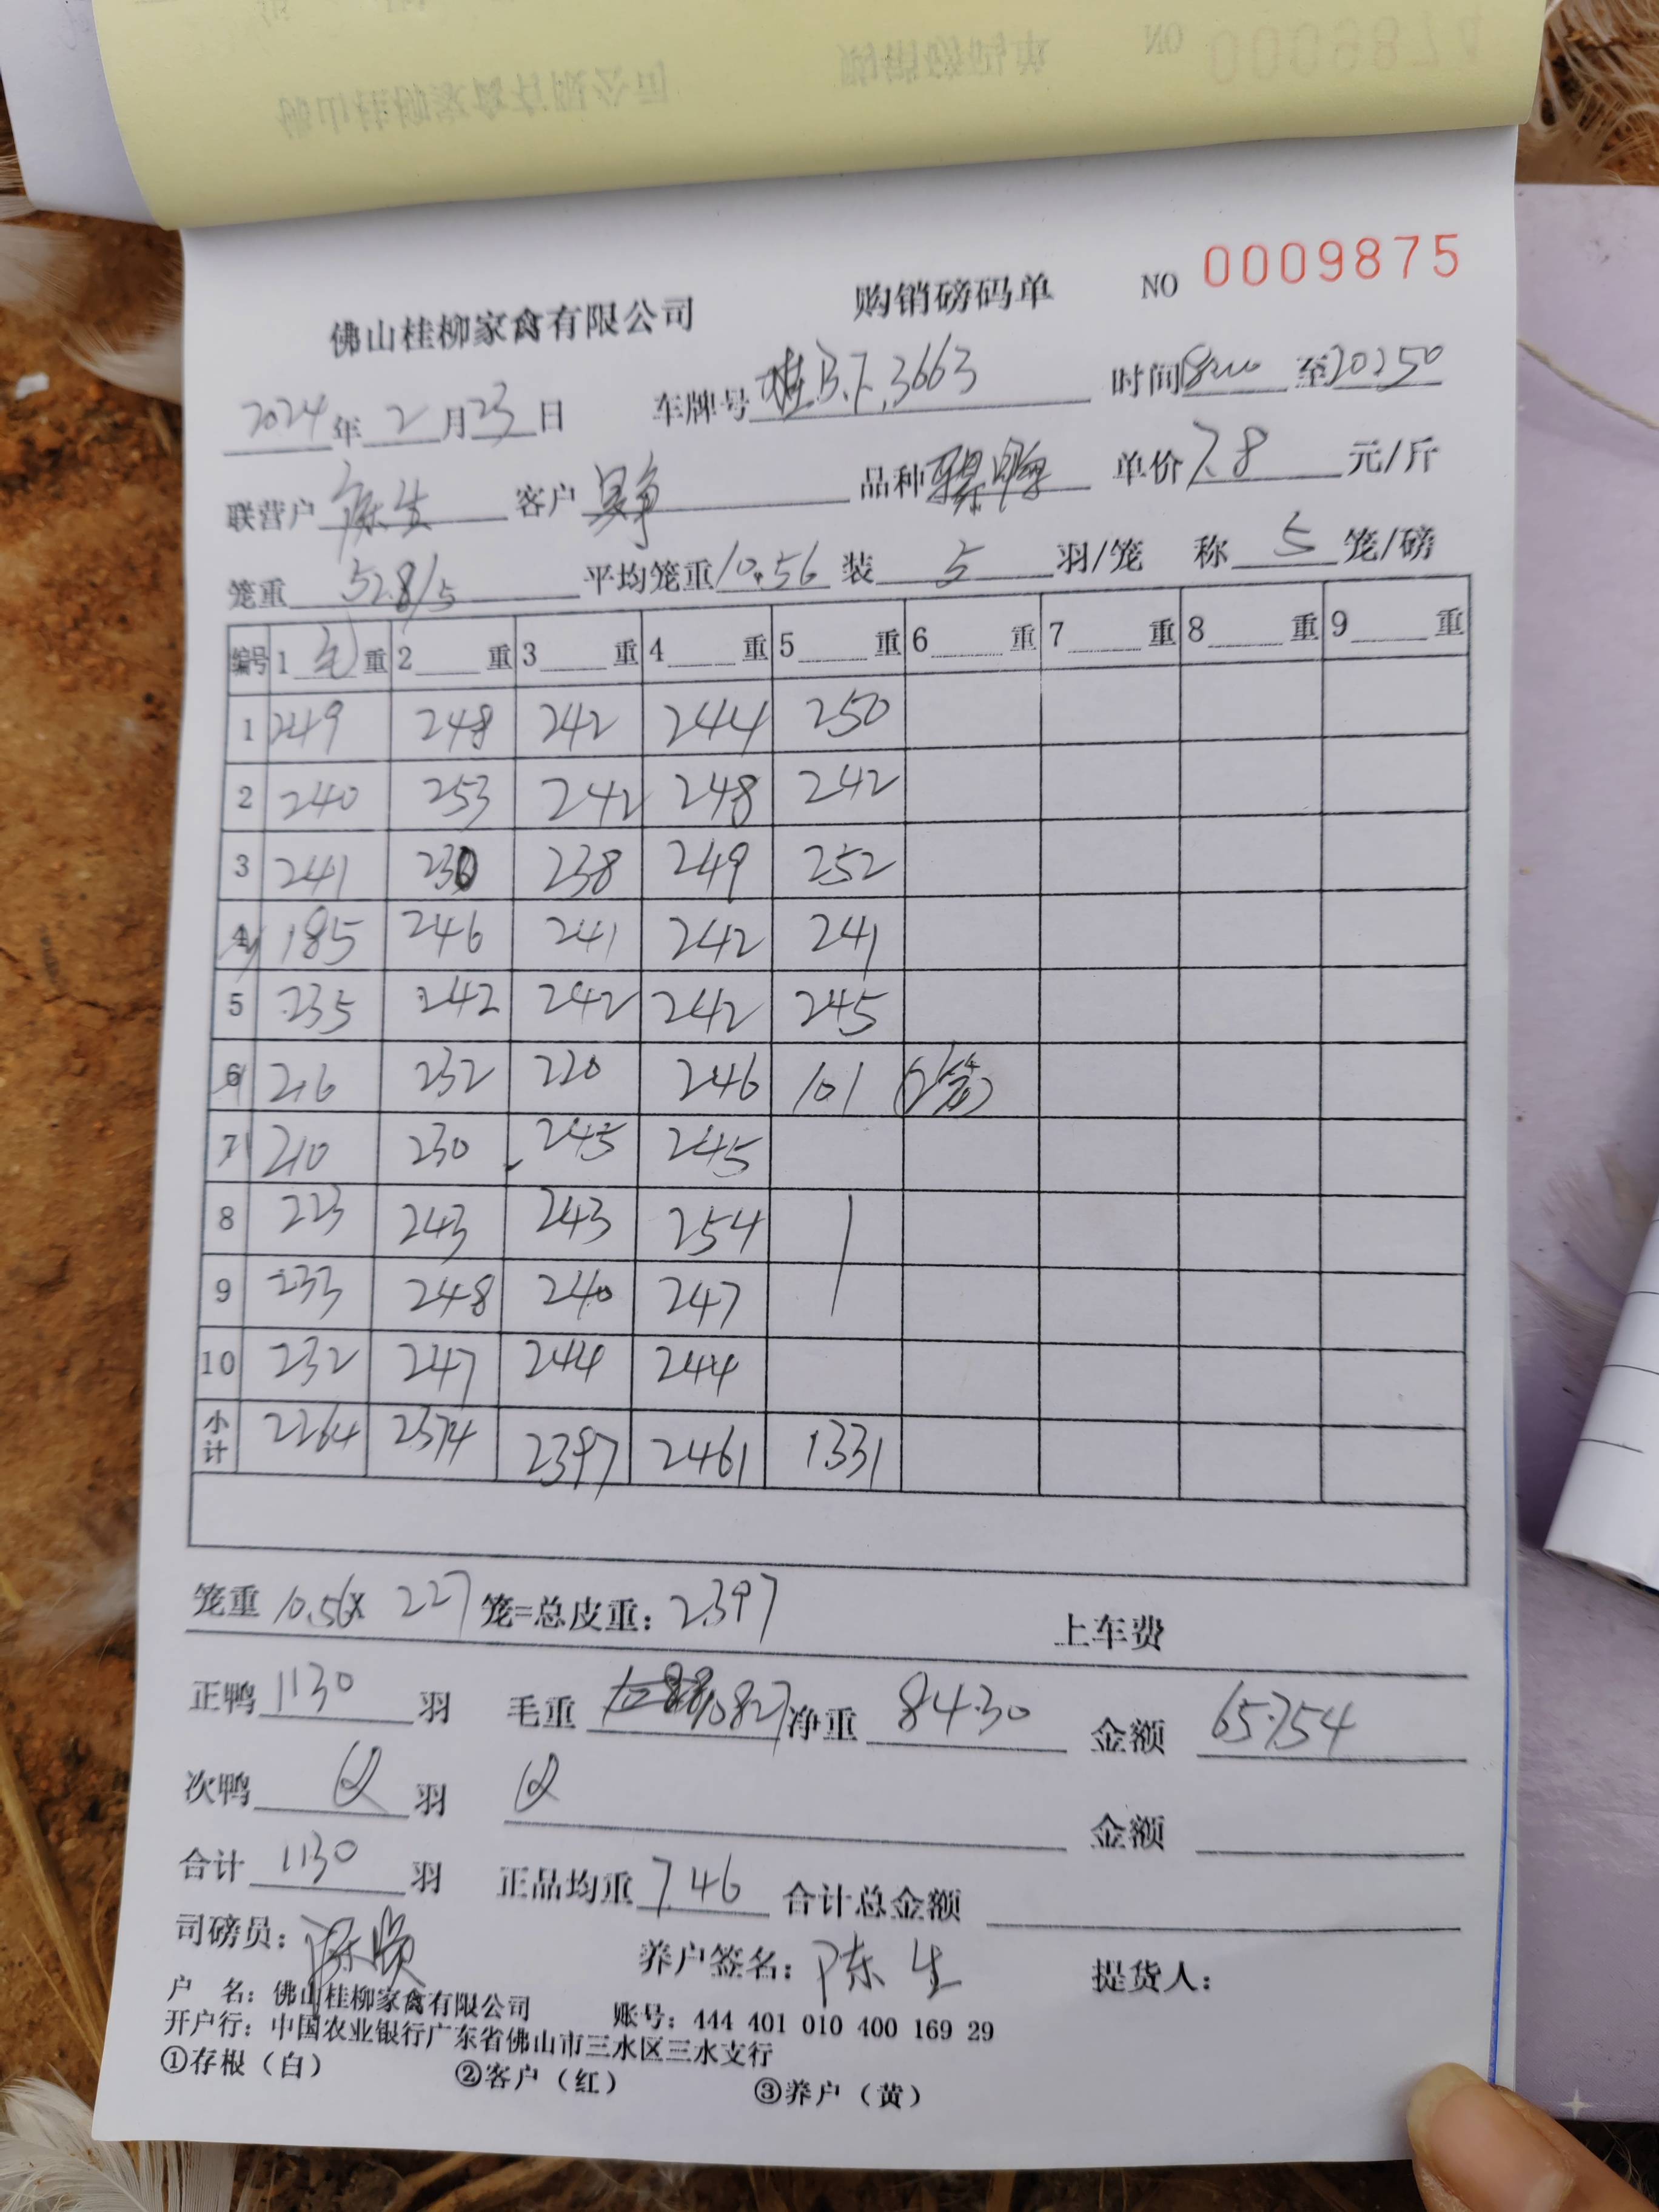 佛山桂柳家禽有限公司 购销磅码单 NO 0009875
2024年2月23日 车牌号 桂B.F.3663 时间 至20:50
联营户 陈生 客户 品种 单价7.8元/斤
笼重 52.8/5 平均笼重10.56 装5羽/笼 称5笼/磅
编号 1毛重 2 重 3 重 4 重 5 重 6 重 7 重 8 重 9 重
1 249 248 242 244 250
2 240 253 242 248 242
3 241 230 238 249 252
4 185 246 241 242 241
5 235 242 242 242 245
6 216 232 220 246 101
7 210 230 245 245
8 223 243 243 254
9 233 248 240 247
10 232 247 244 244
小计 2264 2374 2397 2461 1331
笼重 10.56X 227笼=总皮重:2397 上车费
正鸭1130羽 毛重 10827 净重 8430 金额 65754
次鸭 羽 金额
合计 1130 羽 正品均重 7.46 合计总金额
司磅员: 养户签名:陈生 提货人:
户 名:佛山桂柳家禽有限公司 账号:444 401 010 400 169 29
开户行:中国农业银行广东省佛山市三水区三水支行
①存根(白) ②客户(红) ③养户(黄)